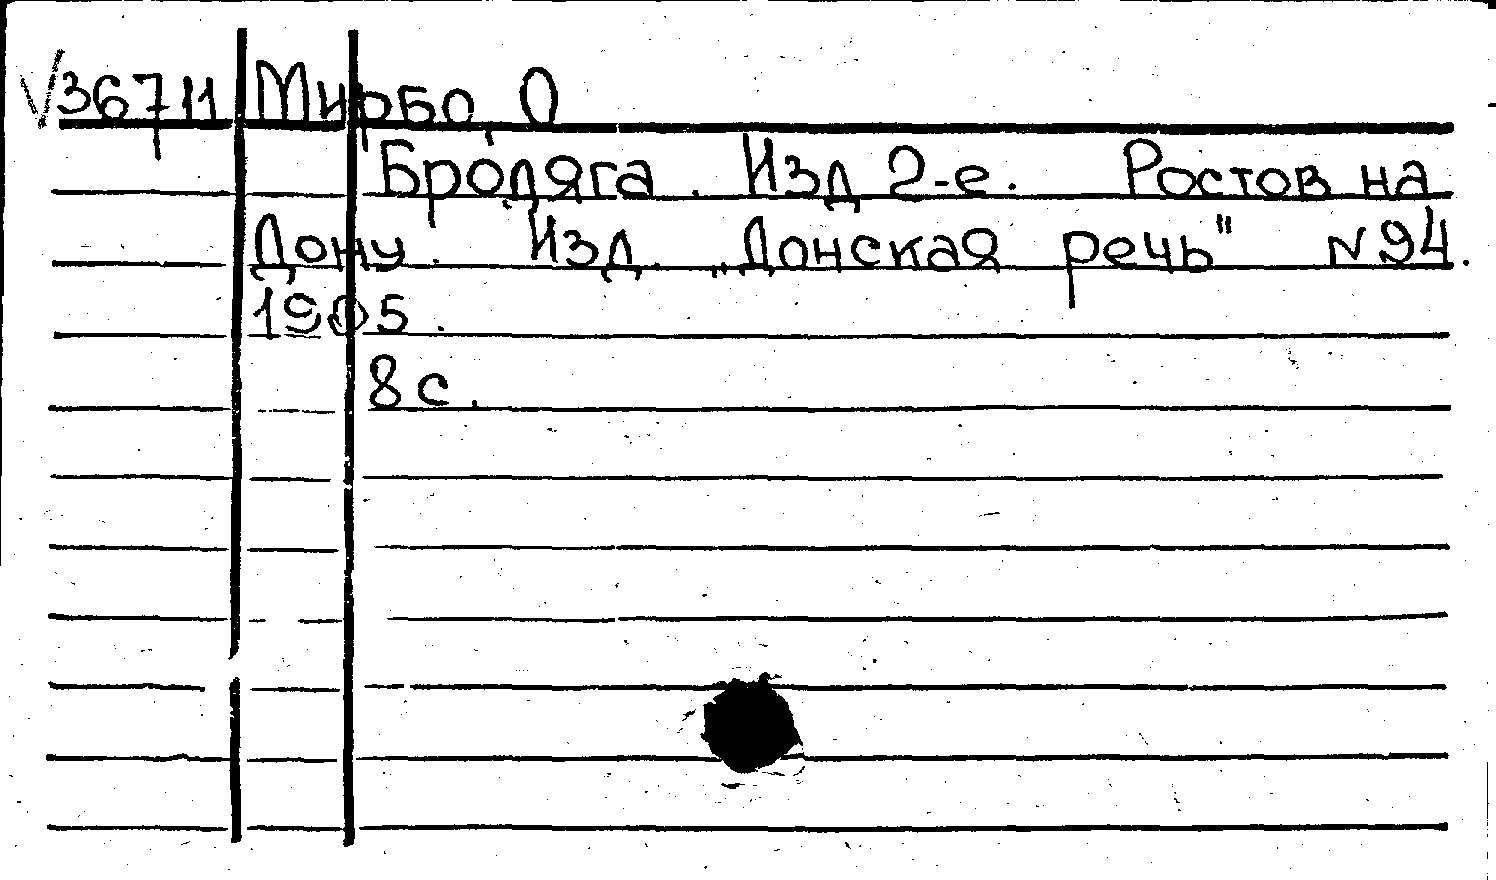 √36711 Мирбо, О
Бродяга. Изд 2-е. Ростов на
Дону. Изд. „Донская речь" N 94.
1905.
8 с.